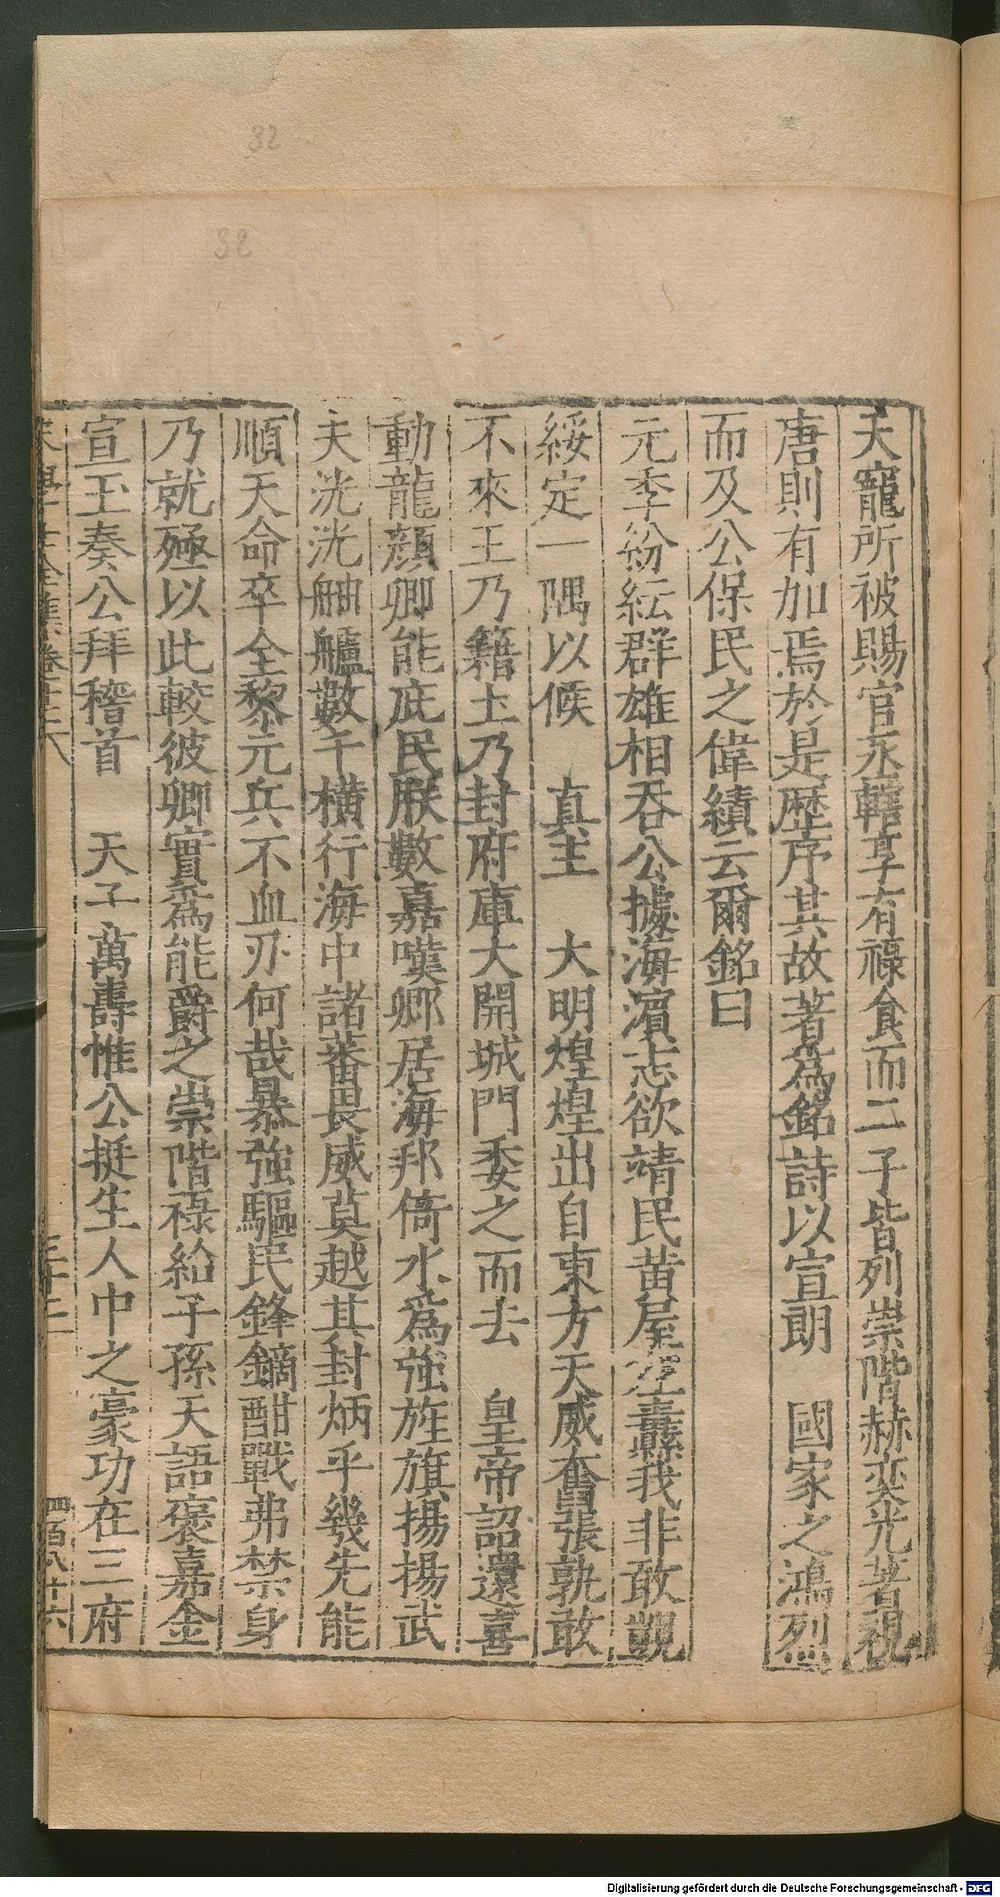 天寵所被賜官丞轄享有祿食而二子皆列崇階赫奕光著視
唐則有加焉於是歷序其故著為銘詩以宣朗　國家之鴻烈
而及公保民之偉績云爾銘曰
元季紛紜群雄相吞公據海濵志欲靖民黃屋左纛我非敢覬
綏定一隅以候　真主　大明煌煌出自東方天威奮張孰敢
不來王乃籍土乃封府庫大開城門委之而去　皇帝詔還喜
動龍顔卿能庇民朕數嘉嘆卿居海邦倚水爲強旌旗揚揚武
夫洸洸舳艫數千橫行海中諸蕃畏威莫越其封炳乎幾先能
順天命卒全黎元兵不血刃何哉暴強驅民鋒鏑酣戰弗禁身
乃就殛以此較彼卿實爲能爵之崇階祿給子孫天語褒嘉金
宣玉奏公拜稽首　天子萬壽惟公挺生人中之豪功在三府
宋學士全集卷十八　三十二　四百八十六
32
32
Digitalisierung gefördert durch die Deutsche Forschungsgemeinschaft - DFG